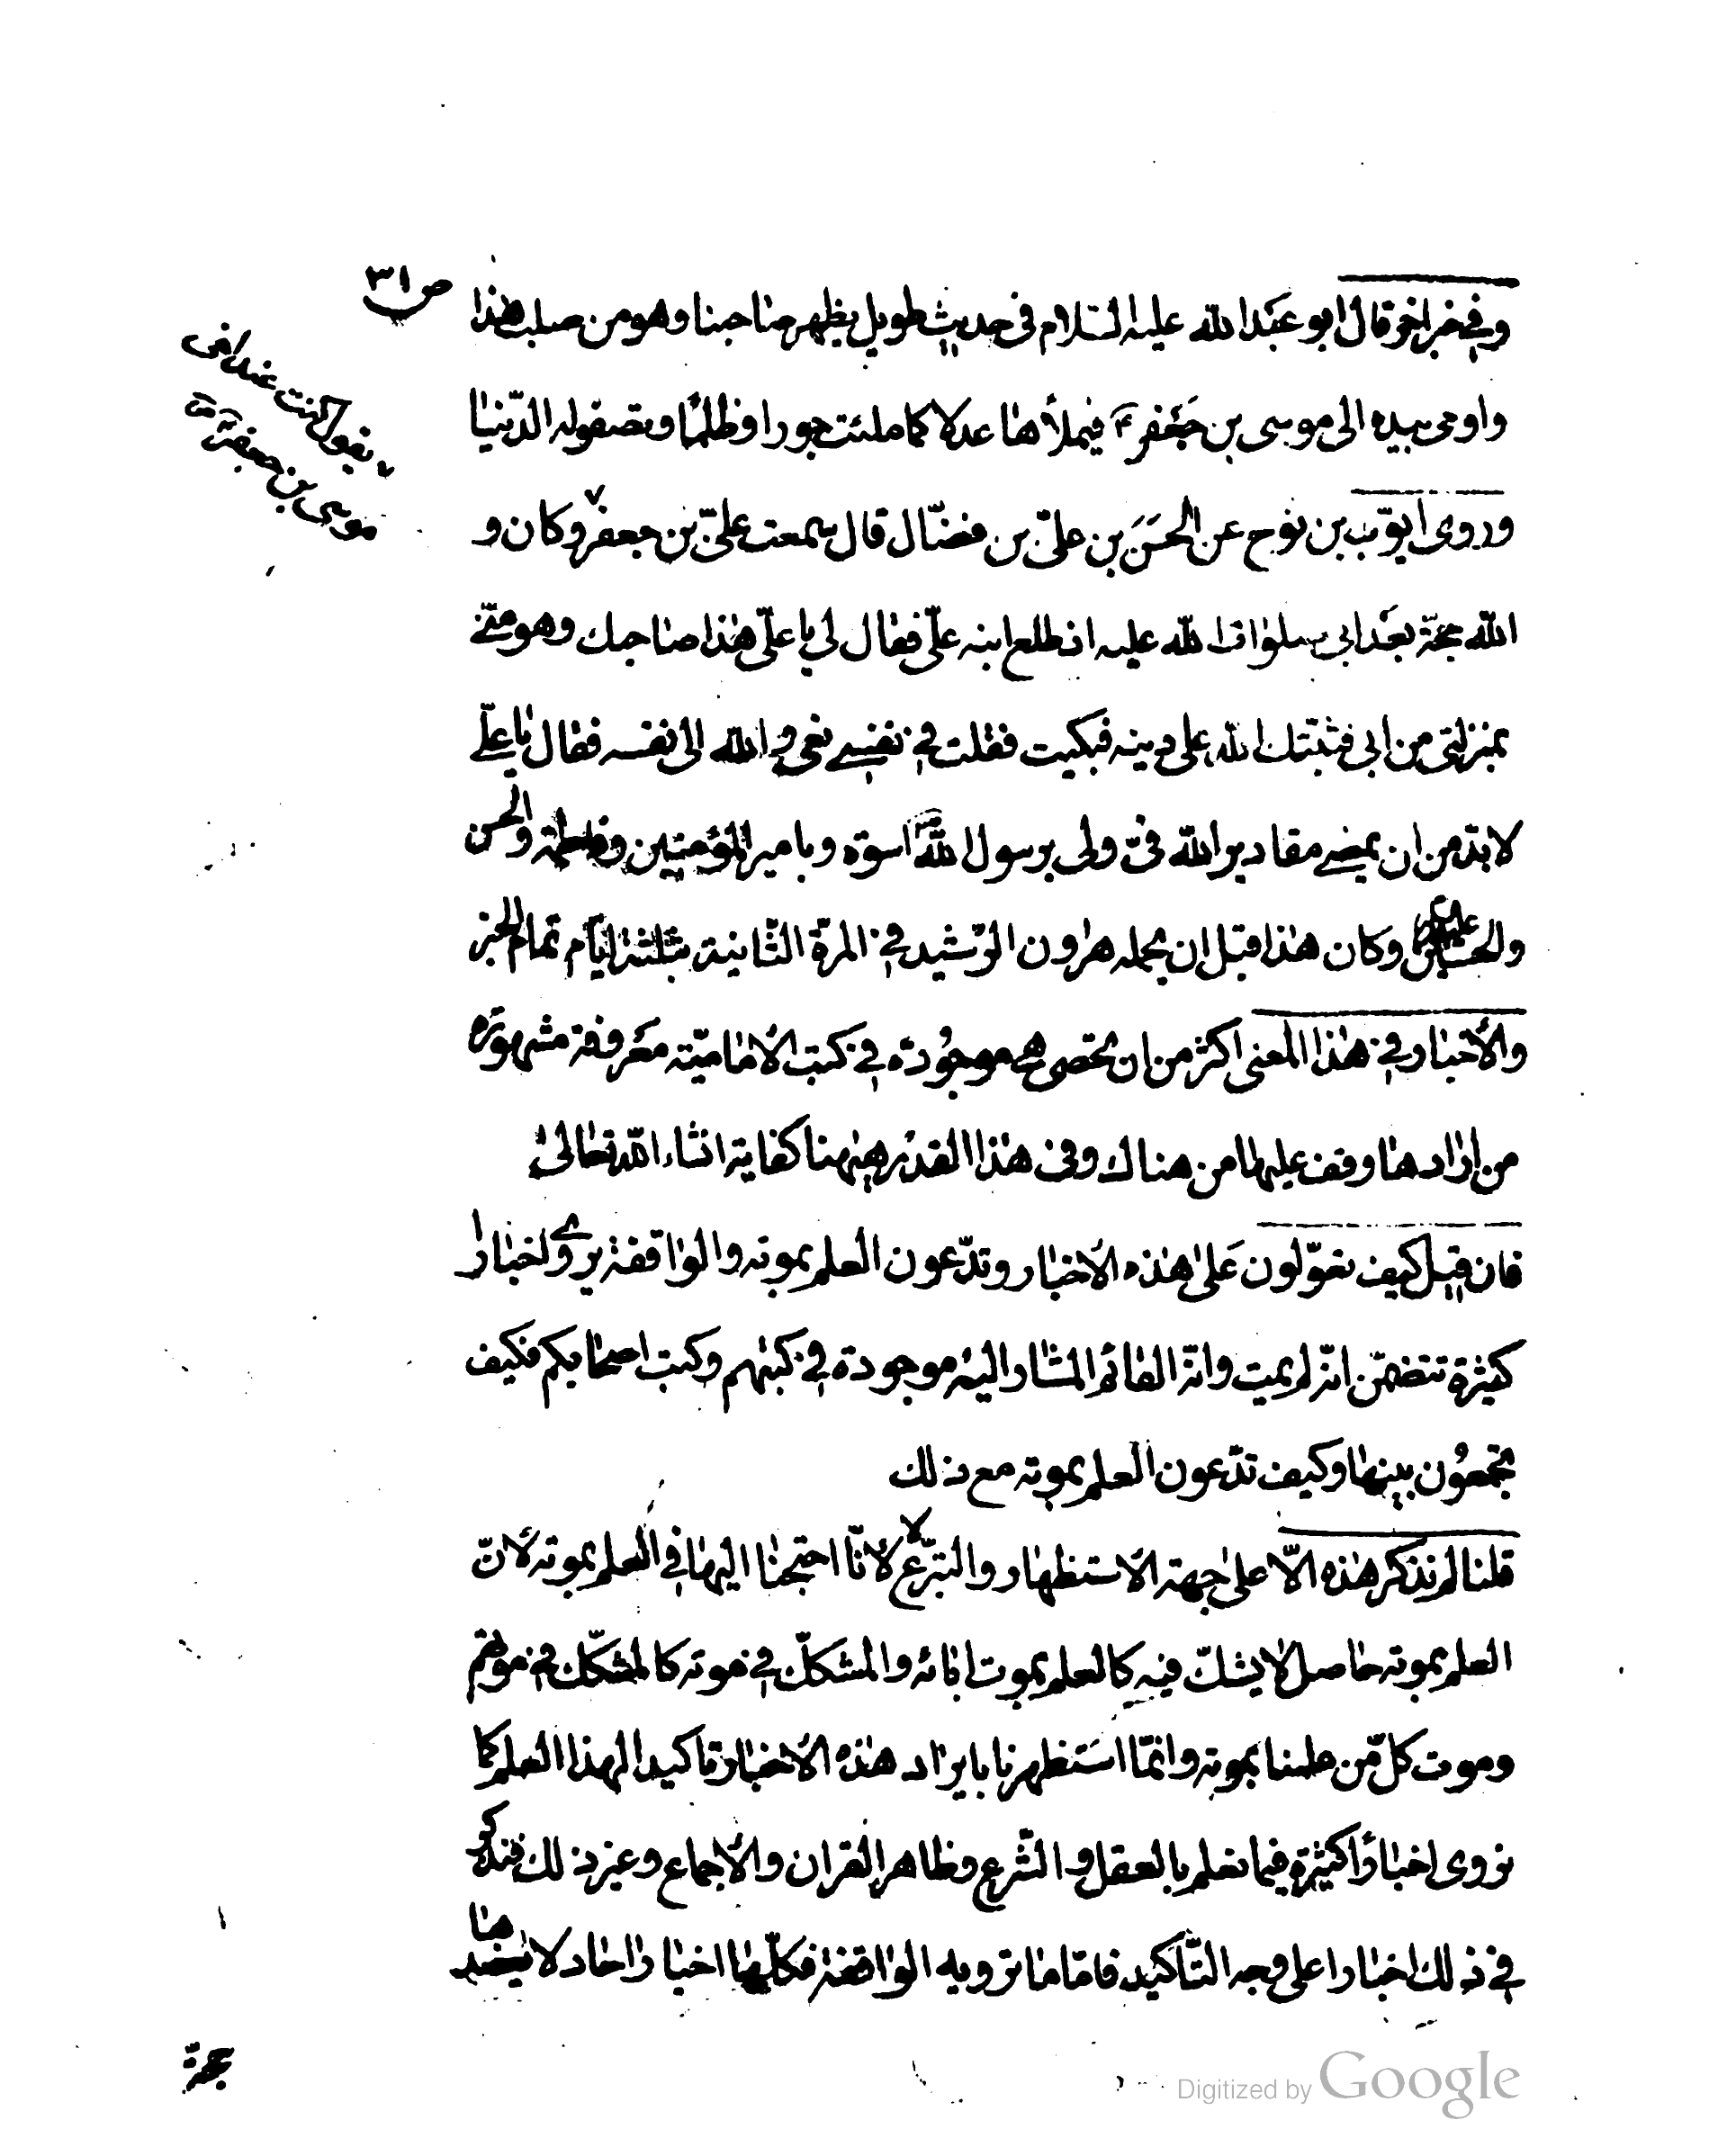 ص ٣١
وفي خبر اخر قال ابو عبد الله عليه السّلام في حديث طويل يظهر صاحبنا وهو من صلب هذا
واومى بيده الى موسى بن جعفر ع فيملأها عدلا كما ملئت جورا وظلما وتصفوله الدّنيا
يقول كنت عند اخى
موسى بن جعفر
وروى ايّوب بن نوح عن الحسن بن علىّ بن فضّال قال سمعت علىّ بن جعفر وكان و
الله حجّة بعد ابى صلوات الله عليه اذ طلع ابنه علىّ فقال لى يا علىّ هذا صاحبك وهو منّي
بمنزلتى من ابى فثبّتك الله على دينه فبكيت فقلت في نفسي نعى والله الى نفسه فقال يا علي
لا بدّ من ان يمضي مقادير الله فىّ ولى برسول الله اسوة وبامير المؤمنين وفاطمة والحسن
والحسين وكان هذا قبل ان يحمله هرون الرّشيد في المرّة الثّانية بثلثة ايّام تمام الخبر
والأخبار في هذا المعنى اكثر من ان تحصى هى موجودة في كتب الأماميّة معروفة مشهورة
من ارادها وقف عليها من هناك وفى هذا القدر هيهنا كفاية انشاء الله تعالى
فان قيل كيف تعوّلون على هذه الأخبار وتدّعون العلم بموته والواقفة يروى اخبارا
كثيرة تتضمّن انّه لم يمت وانّه القائم المشار اليه موجودة في كتبهم وكتب اصحابكم فكيف
تجمعون بينها وكيف تدّعون العلم بموته مع ذلك
قلنا لم نذكر هذه الّا على جهة الأستظهار والتبرّع لا لأنّا احتجنا اليها في العلم بموته لأنّ
العلم بموته حاصل لا يشكّ فيه كالعلم بموت ابائه والمشكّك في موته كالمشكّك في موتهم
وموت كلّ من علمنا بموته وانّما استظهرنا بايراد هذه الأخبار تاكيدا لهذا العلم كما
نروى اخبارا كثيرة فيما نعلم بالعقل والشّرع وظاهر القران والأجماع وغير ذلك فنذكر
في ذلك اخبارا على وجه التّاكيد فامّا ما ترويه الواقفة فكلّها اخبار احاد لا يعضدها
حجّة
Digitized by Google